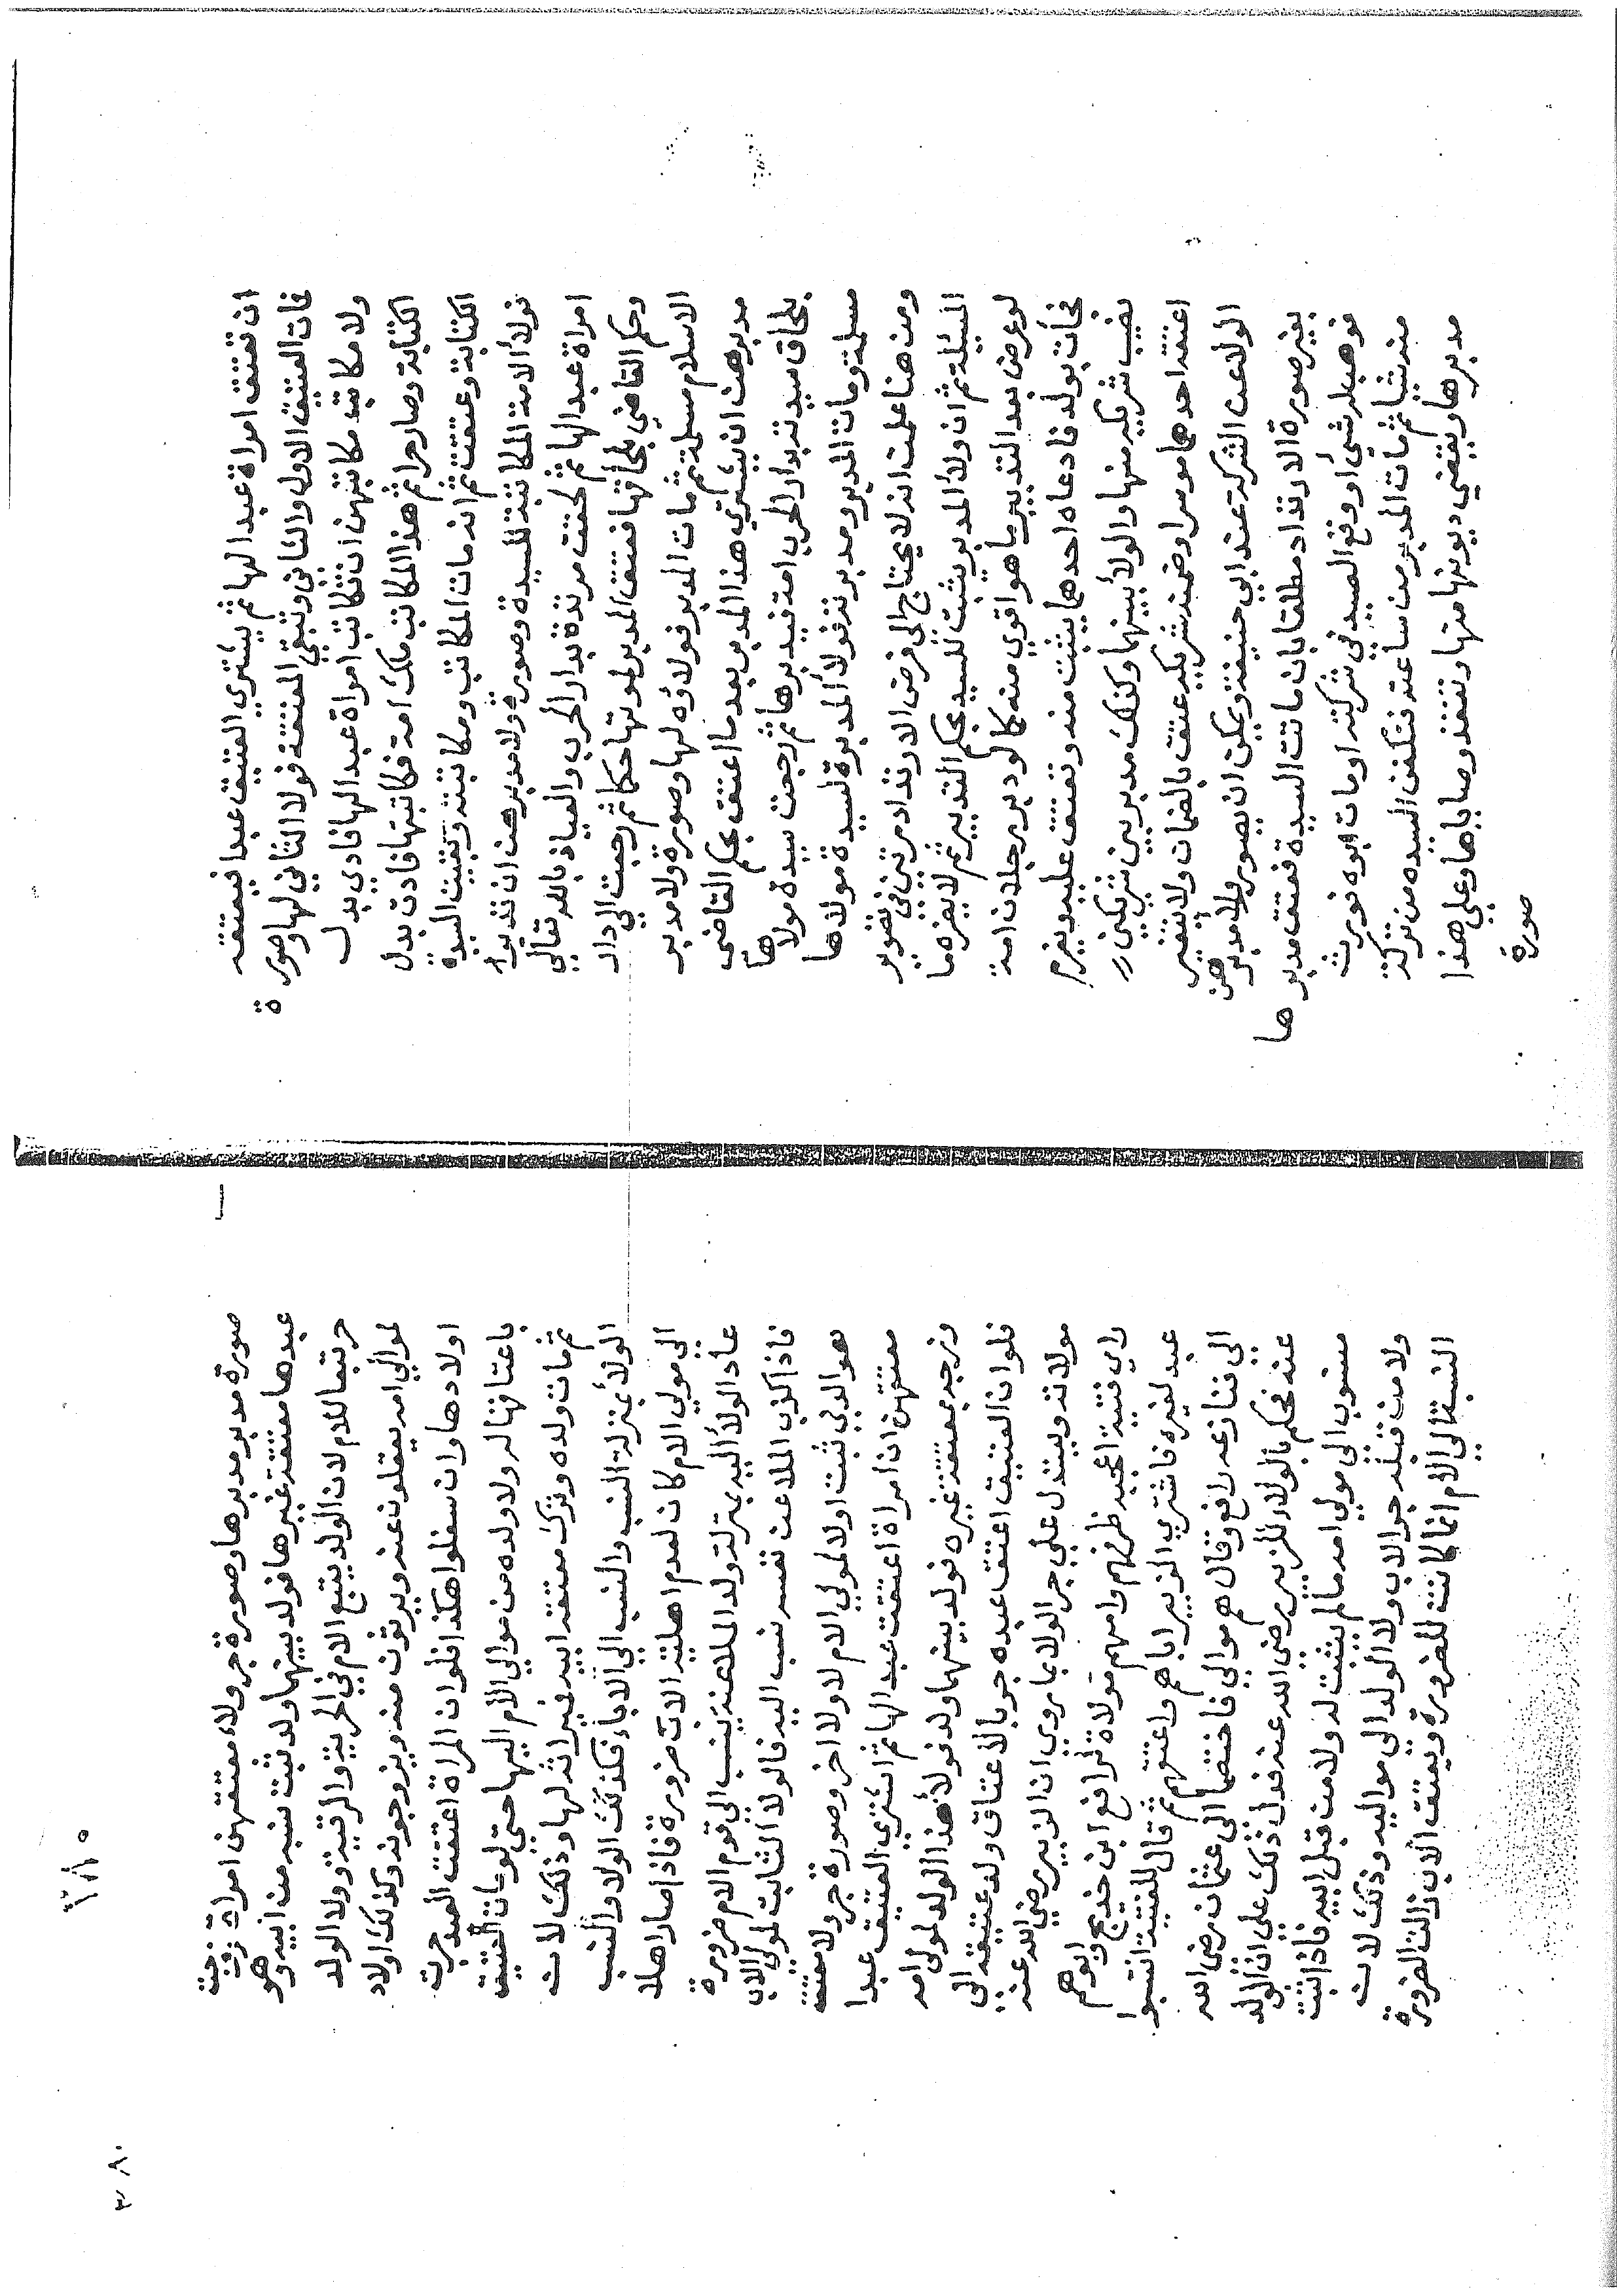 ان تعتق امراة عبدا لها ثم يشتري العتيق عبدا فيعتقه
فمات العتيق الاول والثاني وتبقي المعتقة فولا الثاني لها وصورة
ولا مكاتبه مكاتبهن ان تكاتب امراة عبدا لها فادي بدل
الكتابة وصار حرا ثم هذا المكاتب ملك امة فكاتبتها فادت بدل
الكتابة وعتقت ثم انه مات المكاتب ومكاتبته وبقيت السيدة
فولا الامة المكاتبة للسيدة وصورة ولا مدبرهن ان تدبر
امراة عبدا لها ثم لحقت مرتدة بدار الحرب والعياذ بالله تعالي
وحكم القاضي بلحاقها فعتق المدبر لموتها حكما ثم رجعت الي دار
الاسلام مسلمة ثم مات المدبر فولاؤه لها وصورة ولا مدبر
مدبرهن ان يشتري هذا المدبر بعد ما اعتق بحكم القاضي
بلحاق سيدته بدار الحرب امة فيدبرها ثم رجعت سيدة مولاها
مسلمة ومات المدبر ومدبرته فولا المدبرة لسيدة مولاها
ومن هنا علمت انه لا يحتاج الي فرض الارتداد مرتين في تصوير
المسيلة ثم ان ولا المدبر يثبت للسيد بحكم التدبير ثم لا يضره ما
لو عرض بعد التدبير ما هو اقوي منه كما لو دبر رجلان امة
فجأت بولد فادعاه احدهما يثبت منه وتعتق عليه ويغرم
نصيب شريكه منها والولا بينهما وكذلك مدبر بين شريكين
اعتقه احدهما موسرا وضمنه شريكه عتق بالضمان ولا يتغير
الولا عن الشركة عند ابي حنيفة ويمكن ان يصور ولا مدبرهن
بغير صورة الارتداد مطلقا بان ماتت السيدة فعتق مدبرها
فوهب له شي او وقع الصيد في شركته او مات ابوه فورث
منه شيا ثم مات المدبر من ساعته فتكفن السيدة من تركة
مدبرها ويقضي ديونها منها وتنفذ وصاياها وعلي هذا
صورة
صورة مدبر مدبرها وصورة جر ولاء معتقهن امراة زوجت
عبدها معتقة غيرها فولد بينهما ولد ثبت نسبه من ابيه وهو
حر تبعا للام لان الولد يتبع الام في الحرية والرقية وولا الولد
لموالي امه يعقلون عنه ويرثون منه ويزوجونه وكذلك اولاد
اولادها وان سفلوا هكذا فلو ان المراة اعتقت العبد جرت
باعتاقها له ولا ولده من موالي الام اليها حتي لو مات العتيق
ثم مات ولده وترك معتقه ابيه فميراثه لها وذلك لان
الولا بمنزلة النسب والنسب الي الاباء فكذلك الولا والنسب
الي موالي الام كان لعدم اهلية الاب ضرورة فاذا صار اهلا
عاد الولا اليه بمنزلة ولد الملاعنة ينسب الي قوم الام ضرورة
فاذا اكذب الملاعن نفسه نسب اليه فالولا الثابت لموالي الاب
هو الذي ثبت اولا لموالي الام لا ولا اخر وصورة جر ولا معتق
معتقهن ان امراة اعتقت عبدا لها ثم اشتري العتيق عبدا
وزوجه بمعتقة غيره فولد بينهما ولد فولا هذا الولد لموالي امه
فلو ان العتيق اعتق عبده جر بالاعتاق ولد عتيقه الي
مولاته ويستدل علي جر الولا بما روي ان الزبير رضي الله عنه
راي فتية اعجبه ظرفهم وامهم مولاة لرافع ابن خديج وابوهم
عبد لغيره فاشتري الزبير اباهم واعتقهم ثم قال للفتية انتسبوا
الي فنازعه رافع وقال هم موالي فاختصما الي عثمان رضي الله
عنه فحكم بالولاء للزبير رضي الله عنه فدل ذلك علي ان الولد
منسوب الي موالي امه ما لم يثبت له ولا من قبل ابيه فاذا ثبت
ولا من قبله جر الاب ولا الولد الي مواليه وذلك لان
النسبة الي الام انما كانت للضرورة وتعتق الاب زالت الضرورة